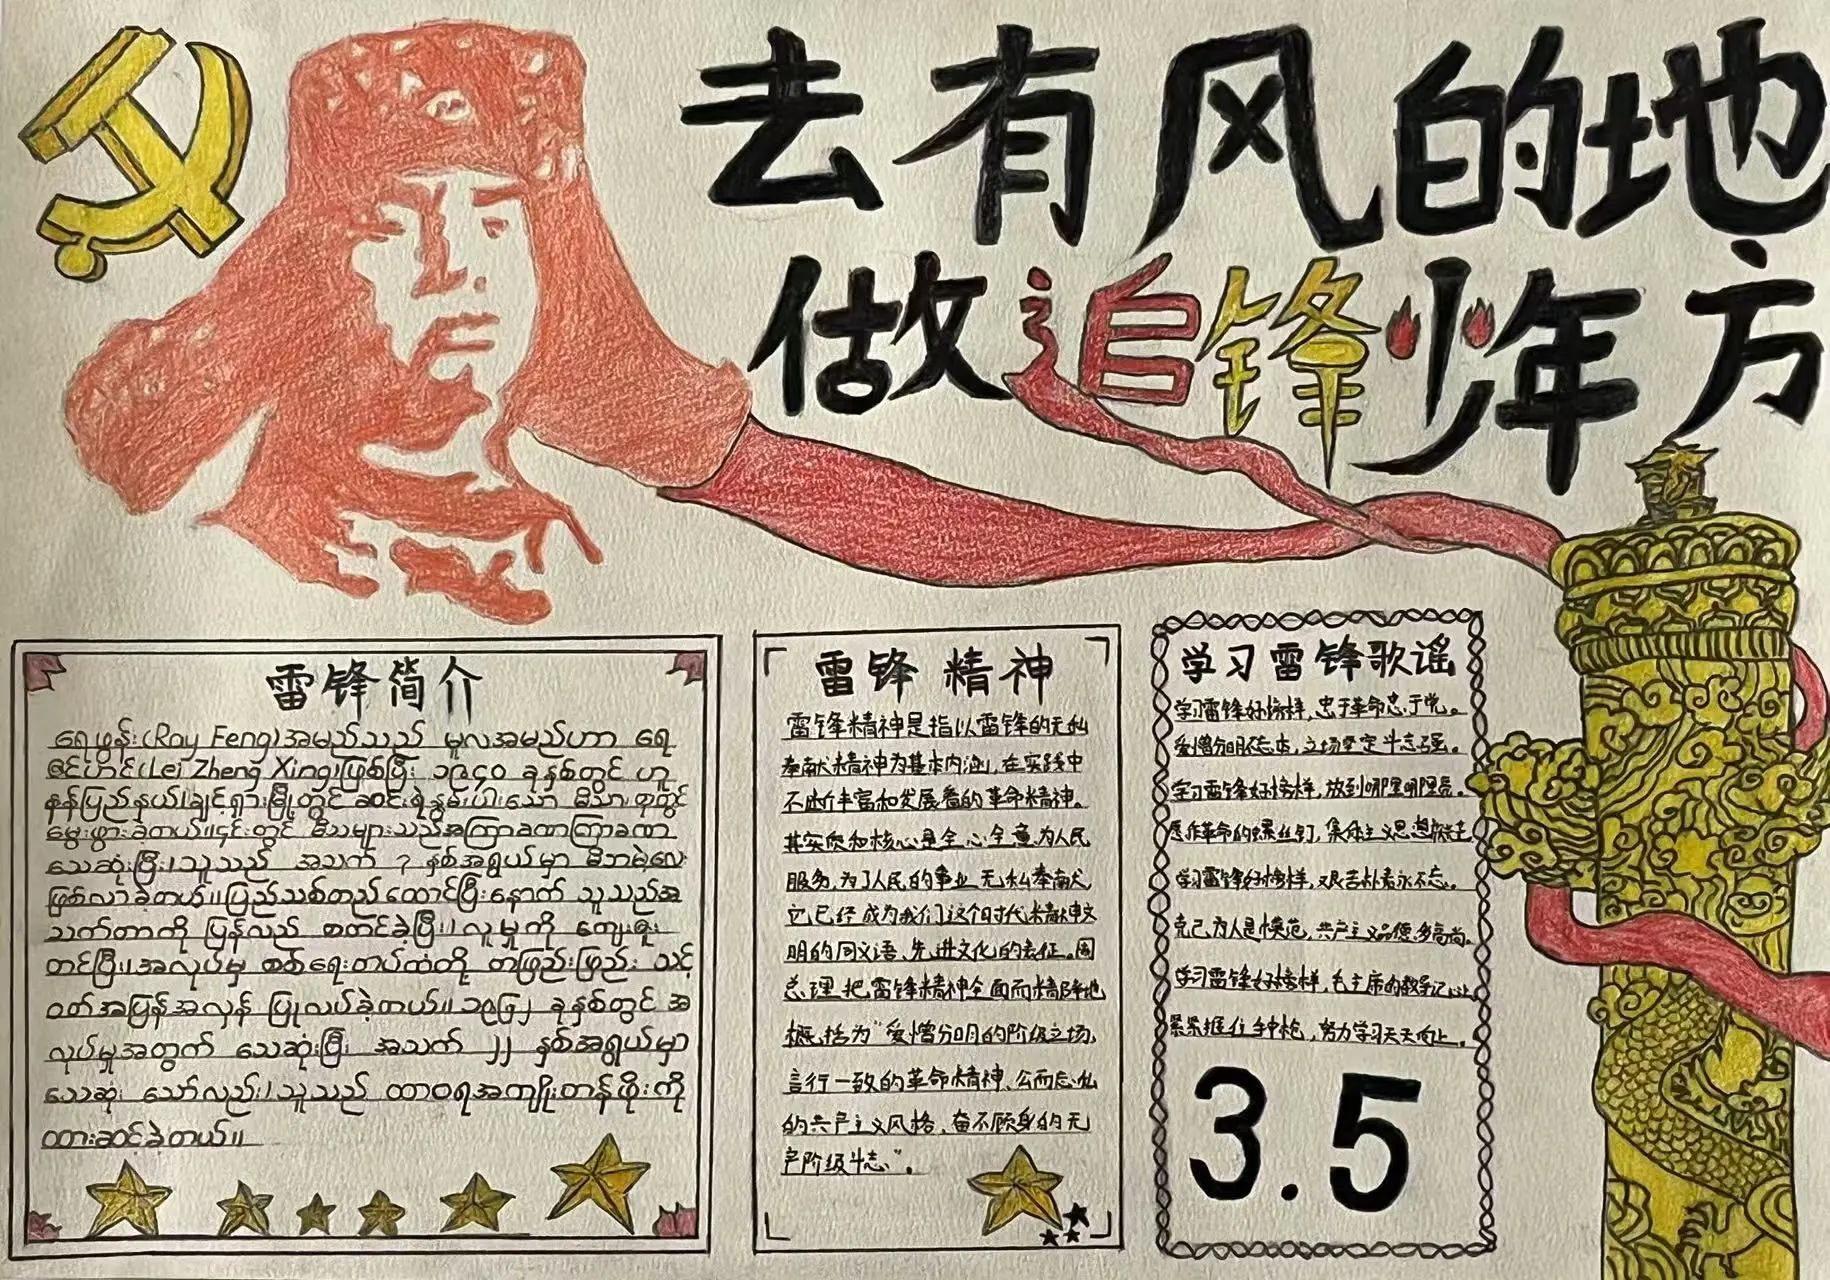 去有风的地方
做追锋少年
雷锋简介
ရေဖွန်း(Ray Feng)အမည်သည် မူလအမည်ဟာ ရေ
ဇင်ဟင်(Lei Zheng Xing)ဖြစ်ပြီး ၁၉၄၀ ခုနှစ်တွင် ဟူ
နန်ပြည်နယ်၊ချင်ရှားမြို့တွင် ဆင်းရဲနွမ်းပါးသော မိသားစုတွင်
မွေးဖွားခဲ့တယ်။၎င်းတွင် မိသများသည်အကြာခဏကြာခဏ
သေဆုံးပြီး၊သူသည် အသက် ၇ နှစ်အရွယ်မှာ မိဘမဲ့လေး
ဖြစ်လာခဲ့တယ်။ပြည်သစ်တည်ထောင်ပြီးနောက် သူသည်အ
သက်တာကို ပြန်လည် စတင်ခဲ့ပြီး၊လူမှုကို ကျေးဇူး
တင်ပြီး၊အလုပ်မှ စစ်ရေးတပ်ထဲတို့ တဖြည်းဖြည်း သင့်
ဝတ်အပြန်အလှန် ပြုလုပ်ခဲ့တယ်။၁၉၆၂ ခုနှစ်တွင် အ
လုပ်မှုအတွက် သေဆုံးပြီး အသက် ၂၂ နှစ်အရွယ်မှာ
သေဆုံး သော်လည်း၊သူသည် ထာဝရအကျိုးတန်ဖိုးကို
ထားဆင်ခဲ့တယ်။
雷锋精神
雷锋精神是指以雷锋的无私
奉献精神为基本内涵,在实践中
不断丰富和发展着的革命精神。
其实质和核心是全心全意为人民
服务,为了人民的事业无私奉献
它已经成为我们这个时代精神文
明的同义语、先进文化的表征。周
总理把雷锋精神全面而精辟地
概括为“爱憎分明的阶级立场、
言行一致的革命精神、公而忘私
的共产主义风格、奋不顾身的无
产阶级斗志”。
学习雷锋歌谣
学习雷锋好榜样,忠于革命忠于党。
爱憎分明不忘本,立场坚定斗志强。
学习雷锋好榜样,放到哪里哪里亮。
愿作革命的螺丝钉,集体主义思想放光芒
学习雷锋好榜样,艰苦朴素永不忘。
克己为人是模范,共产主义品德多高尚。
学习雷锋好榜样,毛主席的教导记心上
紧紧握住手中枪,努力学习天天向上。
3.5